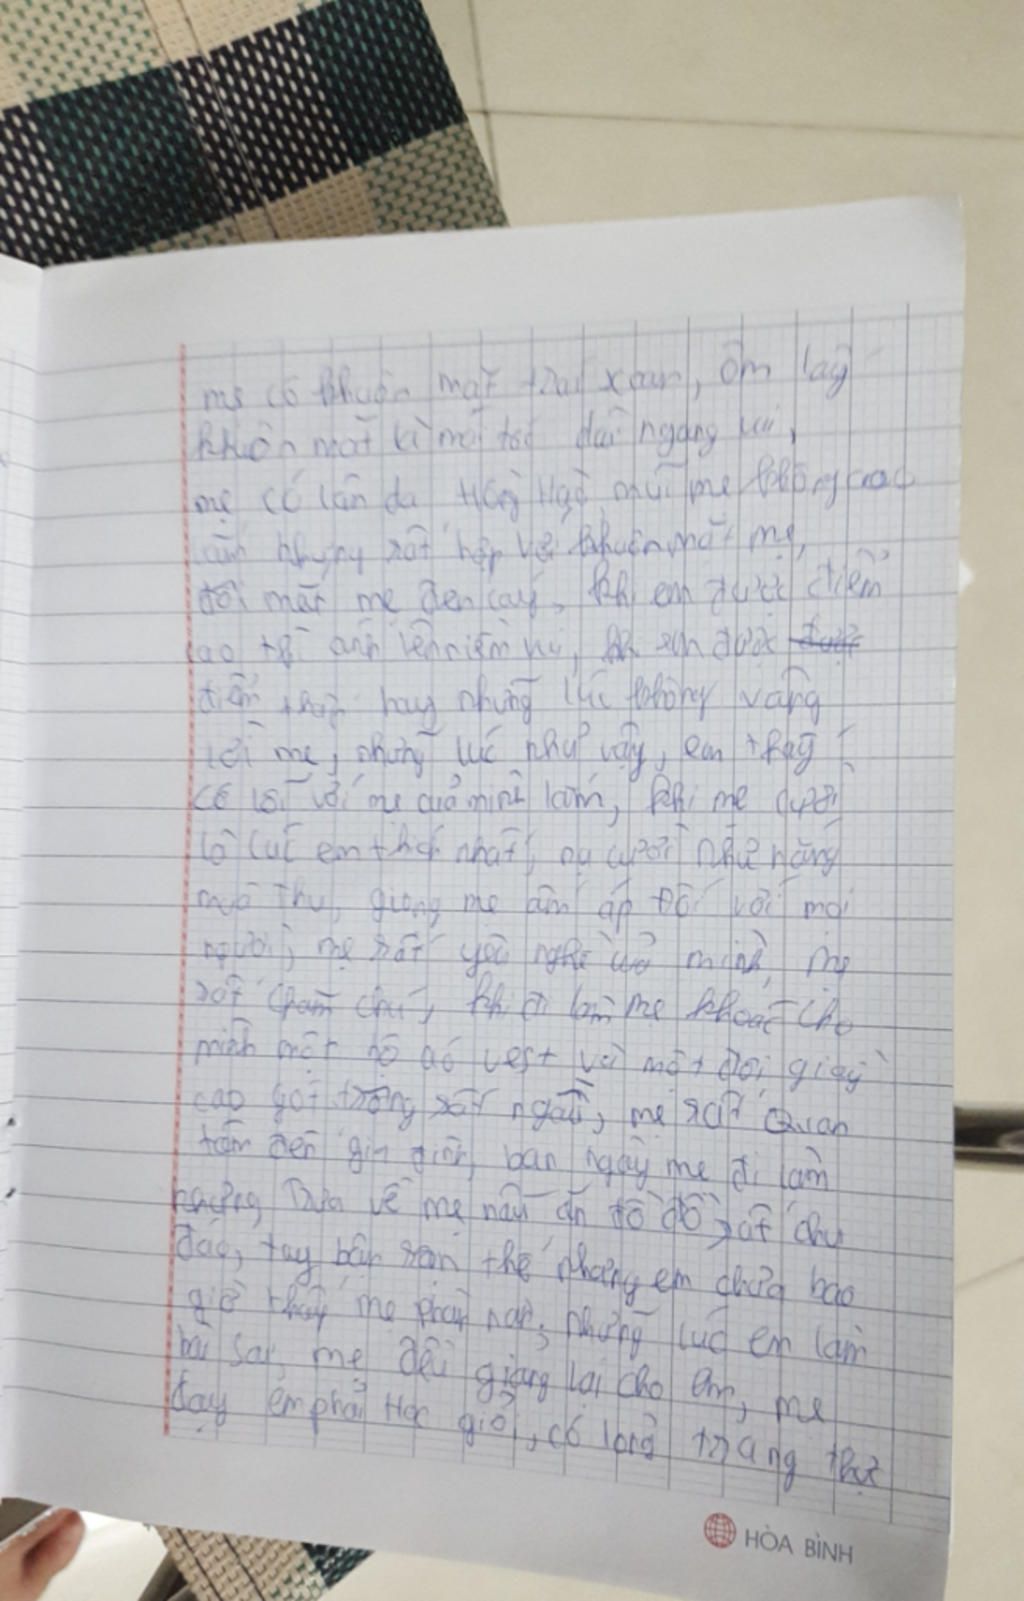 mẹ có khuôn mặt trái xoan, ôm lấy
khuôn mặt là mái tóc dài ngang vai,
mẹ có làn da hồng mũi mẹ không cao
lắm nhưng rất hợp với khuôn mặt mẹ,
đôi mắt mẹ đen láy, khi em được điểm
cao ánh lên niềm vui, khi em được
điểm thấp hay những lúc không vâng
lời mẹ, những lúc như vậy, em thấy
có lỗi với mẹ của mình lắm, khi mẹ cười
là lúc em thích nhất, nụ cười như nắng
mùa thu, giọng mẹ ấm áp Đối với mọi
người, mẹ rất yêu nghề của mình, mẹ
rất chăm chú, khi đi làm mẹ khoác cho
mình một bộ áo vest và một đôi giày
cao gót trông rất ngầu, mẹ rất quan
tâm đến gia đình, ban ngày mẹ đi làm
nhưng về mẹ nấu ăn rất chu
đáo, tay bận thế nhưng em chưa bao
giờ thấy mẹ phàn nàn, những lúc em làm
bài sai, mẹ đều giảng lại cho em, mẹ
dạy em phải Học giỏi, có lòng trung thực
HÒA BÌNH